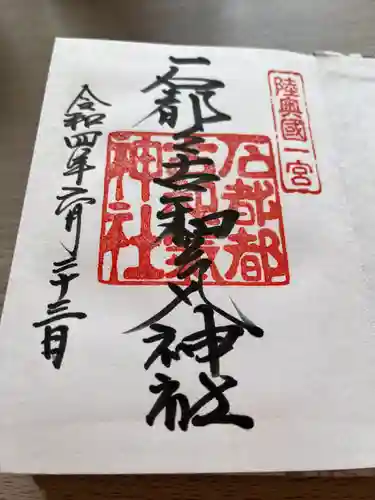 陸奥國一宮
石都々古和氣神社
石都都
古和氣
神社
令和四年六月二十三日